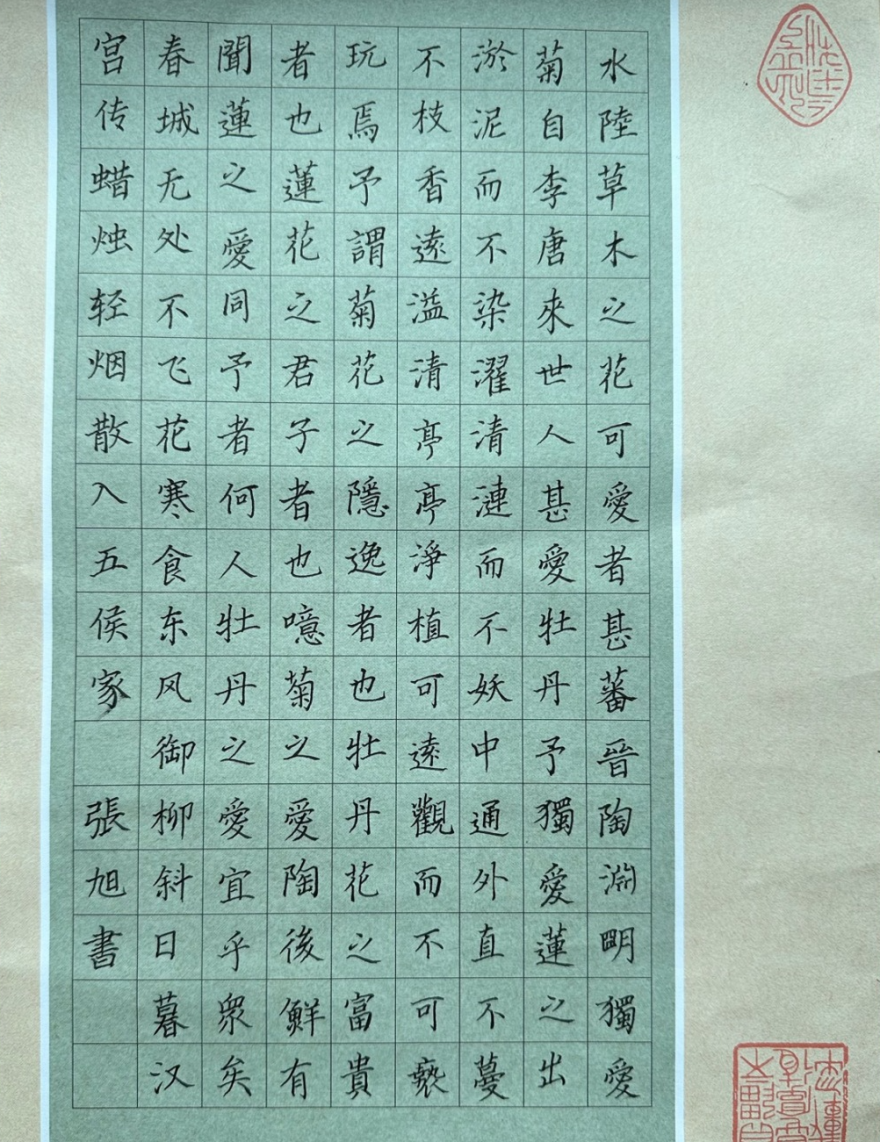 水陸草木之花可愛者甚蕃晉陶淵明獨愛
菊自李唐來世人甚愛牡丹予獨愛蓮之出
淤泥而不染濯清漣而不妖中通外直不蔓
不枝香遠溢清亭亭淨植可遠觀而不可褻
玩焉予謂菊花之隱逸者也牡丹花之富貴
者也蓮花之君子者也噫菊之愛陶後鮮有
聞蓮之愛同予者何人牡丹之愛宜乎眾矣
春城无处不飞花寒食东风御柳斜日暮汉
宫传蜡烛轻烟散入五侯家 張旭書